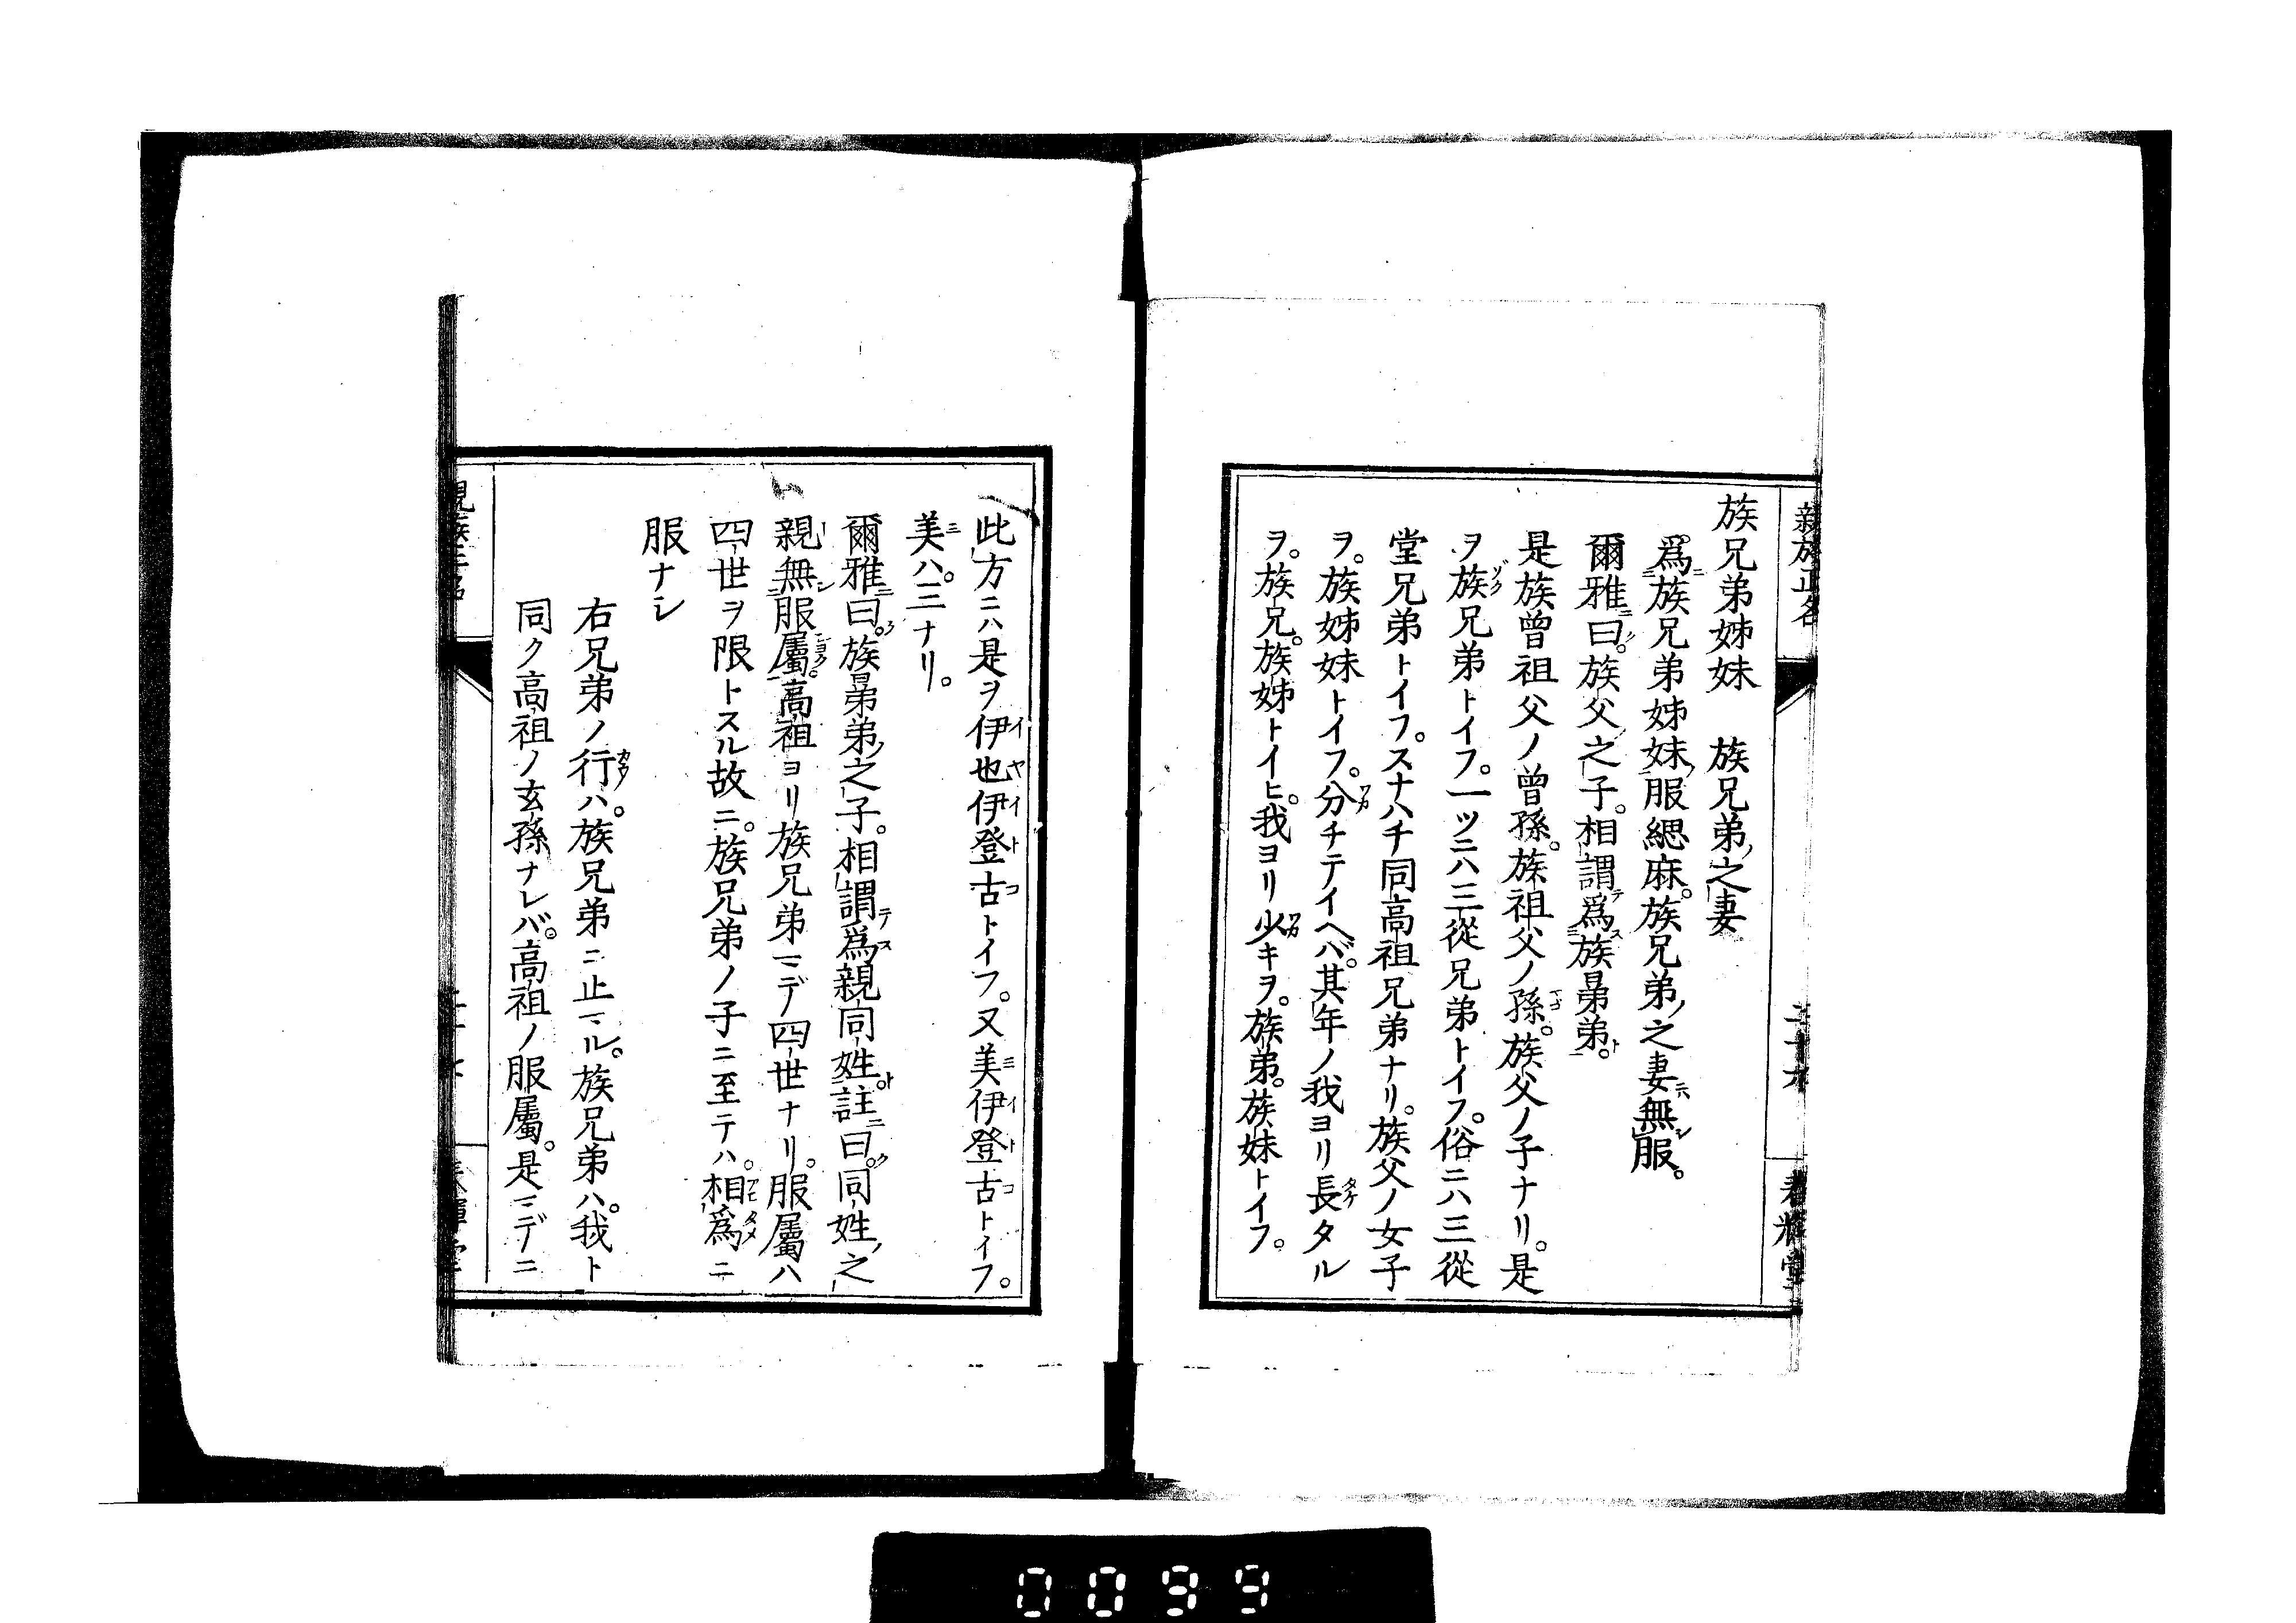 親族正名
族兄弟姊妹　族兄弟之妻
爲族兄弟姊妹服緦麻。族兄弟之妻無服。
爾雅曰。族父之子。相謂爲族晜弟。
是族曾祖父ノ曾孫。族祖父ノ孫。族父ノ子ナリ。是
ヲ族兄弟トイフ。一ツニハ三從兄弟トイフ。俗ニハ三從
堂兄弟トイフ。スナハチ同高祖兄弟ナリ。族父ノ女子
ヲ。族姊妹トイフ。分チテイヘバ。其年ノ我ヨリ長タル
ヲ。族兄。族姊トイヒ。我ヨリ少キヲ。族弟。族妹トイフ。
此方ニハ是ヲ伊也伊登古トイフ。又美伊登古トイフ。
美ハ。三ナリ。
爾雅曰。族晜弟之子。相謂爲親同姓註曰。同姓之
親無服屬。高祖ヨリ族兄弟マデ四世ナリ。服屬ハ
四世ヲ限トスル故ニ。族兄弟ノ子ニ至テハ。相爲ニ
服ナシ
右兄弟ノ行ハ。族兄弟ニ止マル。族兄弟ハ。我ト
同ク高祖ノ玄孫ナレバ。高祖ノ服屬。是マデニ
0099